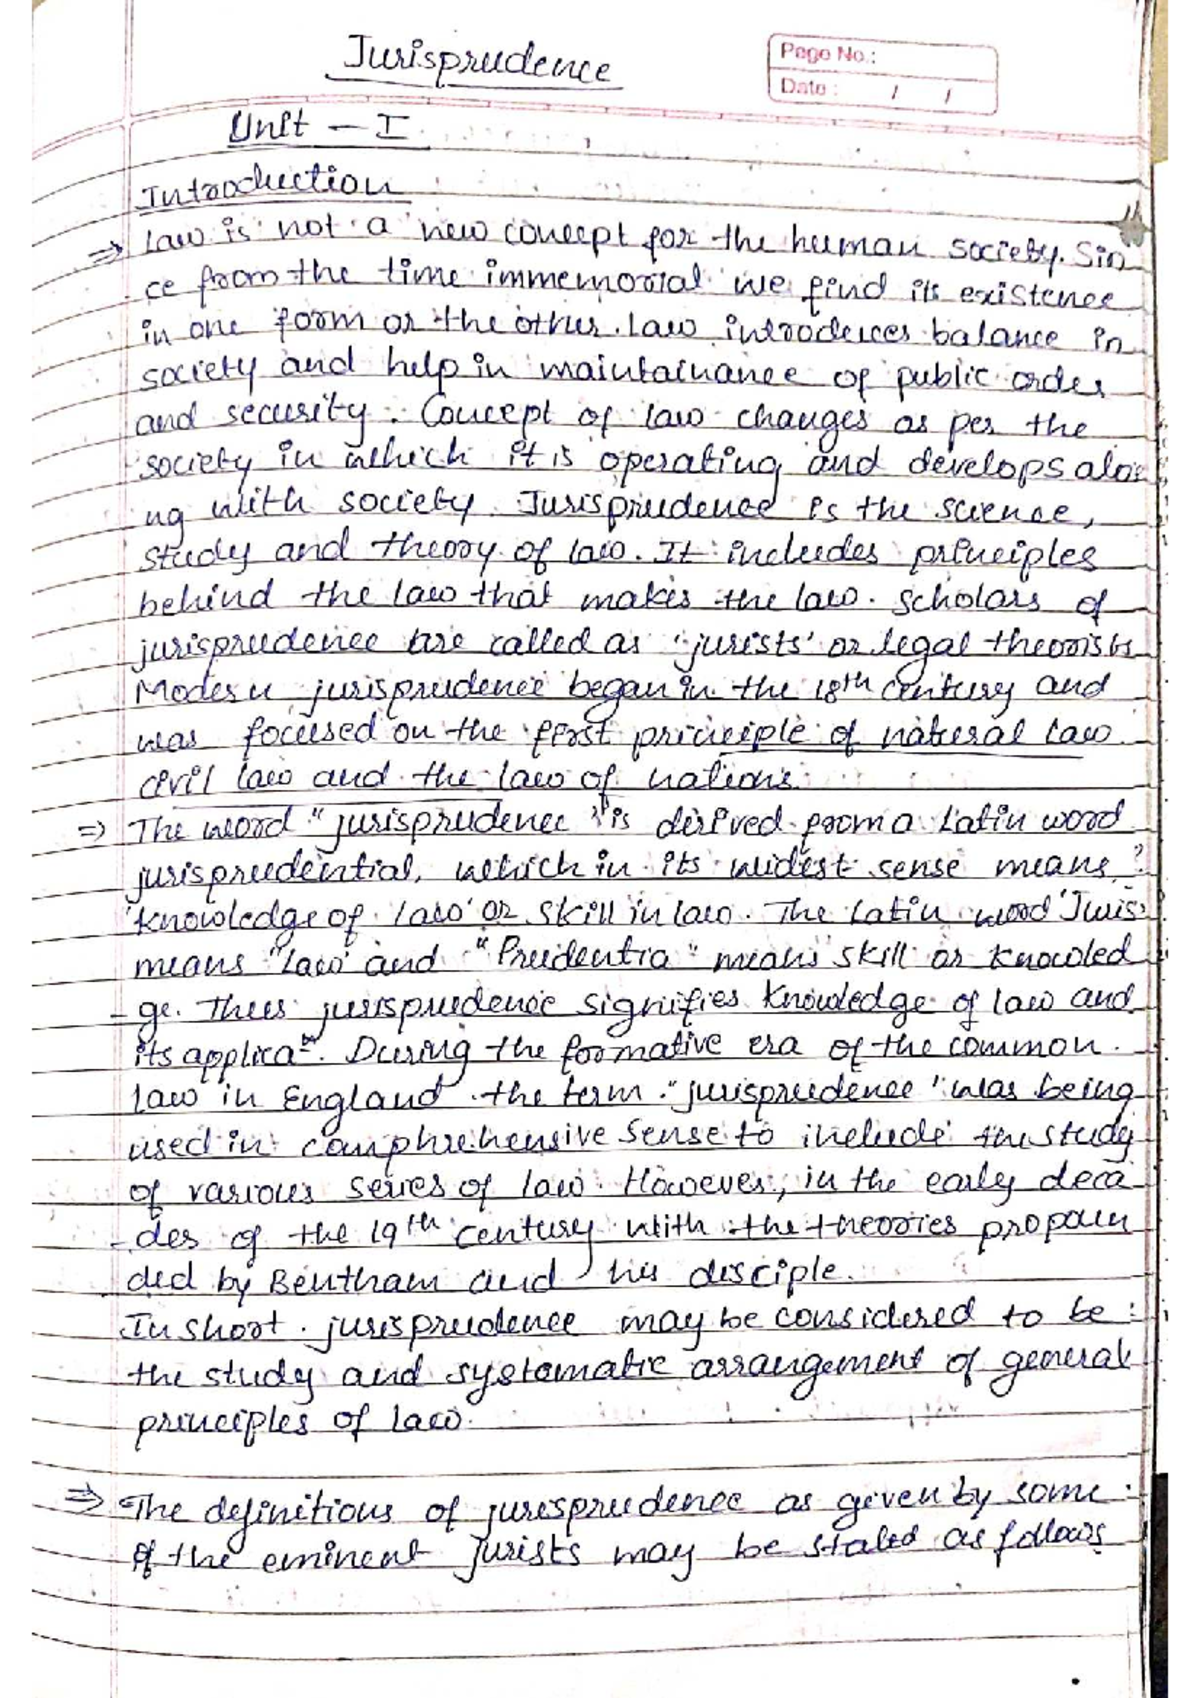 Jurisprudence
Page No.:
Date : / /
Unit - I
Introduction
⇒ Law is not a new concept for the human society. Sin
ce from the time immemorial we find its existence
in one form or the other. Law introduces balance in
society and help in maintainance of public order
and security. Concept of law changes as per the
society in which it is operating and develops alo
ng with society. Jurisprudence is the science,
study and theory of law. It includes principles
behind the law that makes the law. Scholars of
jurisprudence are called as "jurists' or legal theorists
Modern jurisprudence began in the 18th century and
was focused on the first priciciple of natural law
civil law and the law of nations.
⇒ The word "jurisprudence" is derived from a Latin word
jurisprudential, which in its widest sense means
'knowledge of law' or skill in law. The Latin word 'Juris
means "law' and "Prudentia" means skill or knowled
-ge. Thus jurisprudence signifies knowledge of law and
its applicaⁿ. During the formative era of the common
law in England the term "jurisprudence" was being
used in comphrehensive sense to include the study
of various series of law. However, in the early deca
-des of the 19th century with the theories propoun
ded by Bentham and his disciple.
In short. jurisprudence may be considered to be
the study and systematic arrangement of general
principles of law.
⇒ The definitions of jurisprudence as given by some
of the eminent jurists may be stated as follows